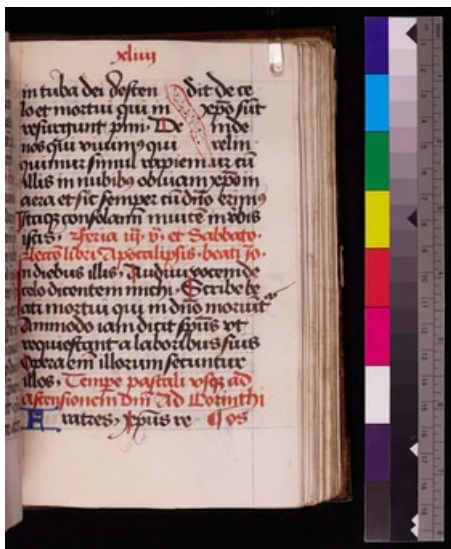 xliiij
in tuba dei descen dit de ce
lo et mortui qui in xp̄o sūt
resurgunt prīmi. De inde
nos qui viuimꝰ qui relin
quimur simul rapiemur cū
illis in nubibꝰ obuiam xp̄o in
aera et sic semper cū dn̄o erimꝰ
Itaqꝫ consolamī inuicē in v̄bis
istis. Feria iij. v. et Sabbato.
Lectō libri Apocalipsis. beati Jo.
In diebus illis. Audiui vocem de
celo dicentem michi. Scribe be
ati mortui qui in dn̄o moriūt᷑
Ammodo iam dicit sp̄us vt
requiescant a laboribus suis
Opera em̄ illorum secuntur
illos. Tempe pascali vsqꝫ ad
ascensionem dn̄i Ad Corinthi
Fratres, xp̄us re ¶ os